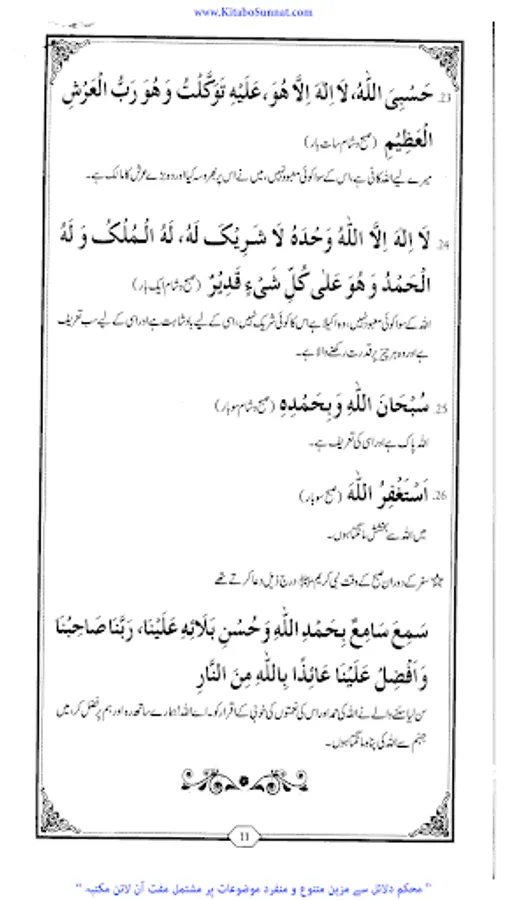 www.KitaboSunnat.com
23. حَسْبِيَ اللّٰهُ، لَا اِلٰهَ اِلَّا هُوَ، عَلَيْهِ تَوَكَّلْتُ وَ هُوَ رَبُّ الْعَرْشِ
الْعَظِيْمِ (صبح و شام سات بار)
میرے لیے اللہ کافی ہے، اس کے سوا کوئی معبود نہیں، میں نے اس پر بھروسہ کیا اور وہ بڑے عرش کا مالک ہے۔
24. لَا اِلٰهَ اِلَّا اللّٰهُ وَحْدَهُ لَا شَرِيْكَ لَهُ، لَهُ الْمُلْكُ وَ لَهُ
الْحَمْدُ وَ هُوَ عَلٰى كُلِّ شَىْءٍ قَدِيْرٌ (صبح و شام ایک بار)
اللہ کے سوا کوئی معبود نہیں، وہ اکیلا ہے اس کا کوئی شریک نہیں، اسی کے لیے بادشاہت ہے اور اسی کے لیے سب تعریف
ہے اور وہ ہر چیز پر قدرت رکھنے والا ہے۔
25. سُبْحَانَ اللّٰهِ وَبِحَمْدِهِ (صبح و شام سو بار)
اللہ پاک ہے اور اسی کی تعریف ہے۔
26. اَسْتَغْفِرُ اللّٰهَ (صبح سو بار)
میں اللہ سے بخشش مانگتا ہوں۔
☆ سفر کے دوران صبح کے وقت نبی کریم ﷺ درج ذیل دعا کرتے تھے
سَمِعَ سَامِعٌ بِحَمْدِ اللّٰهِ وَحُسْنِ بَلَائِهِ عَلَيْنَا، رَبَّنَا صَاحِبْنَا
وَاَفْضِلْ عَلَيْنَا عَائِذًا بِاللّٰهِ مِنَ النَّارِ
سن لیا سننے والے نے اللہ کی حمد اور اس کی نعمتوں کی خوبی کے اقرار کو۔ اے اللہ! ہمارے ساتھ رہ اور ہم پر فضل کر، میں
جہنم سے اللہ کی پناہ مانگتا ہوں۔
11
" محکم دلائل سے مزین متنوع و منفرد موضوعات پر مشتمل مفت آن لائن مکتبہ "